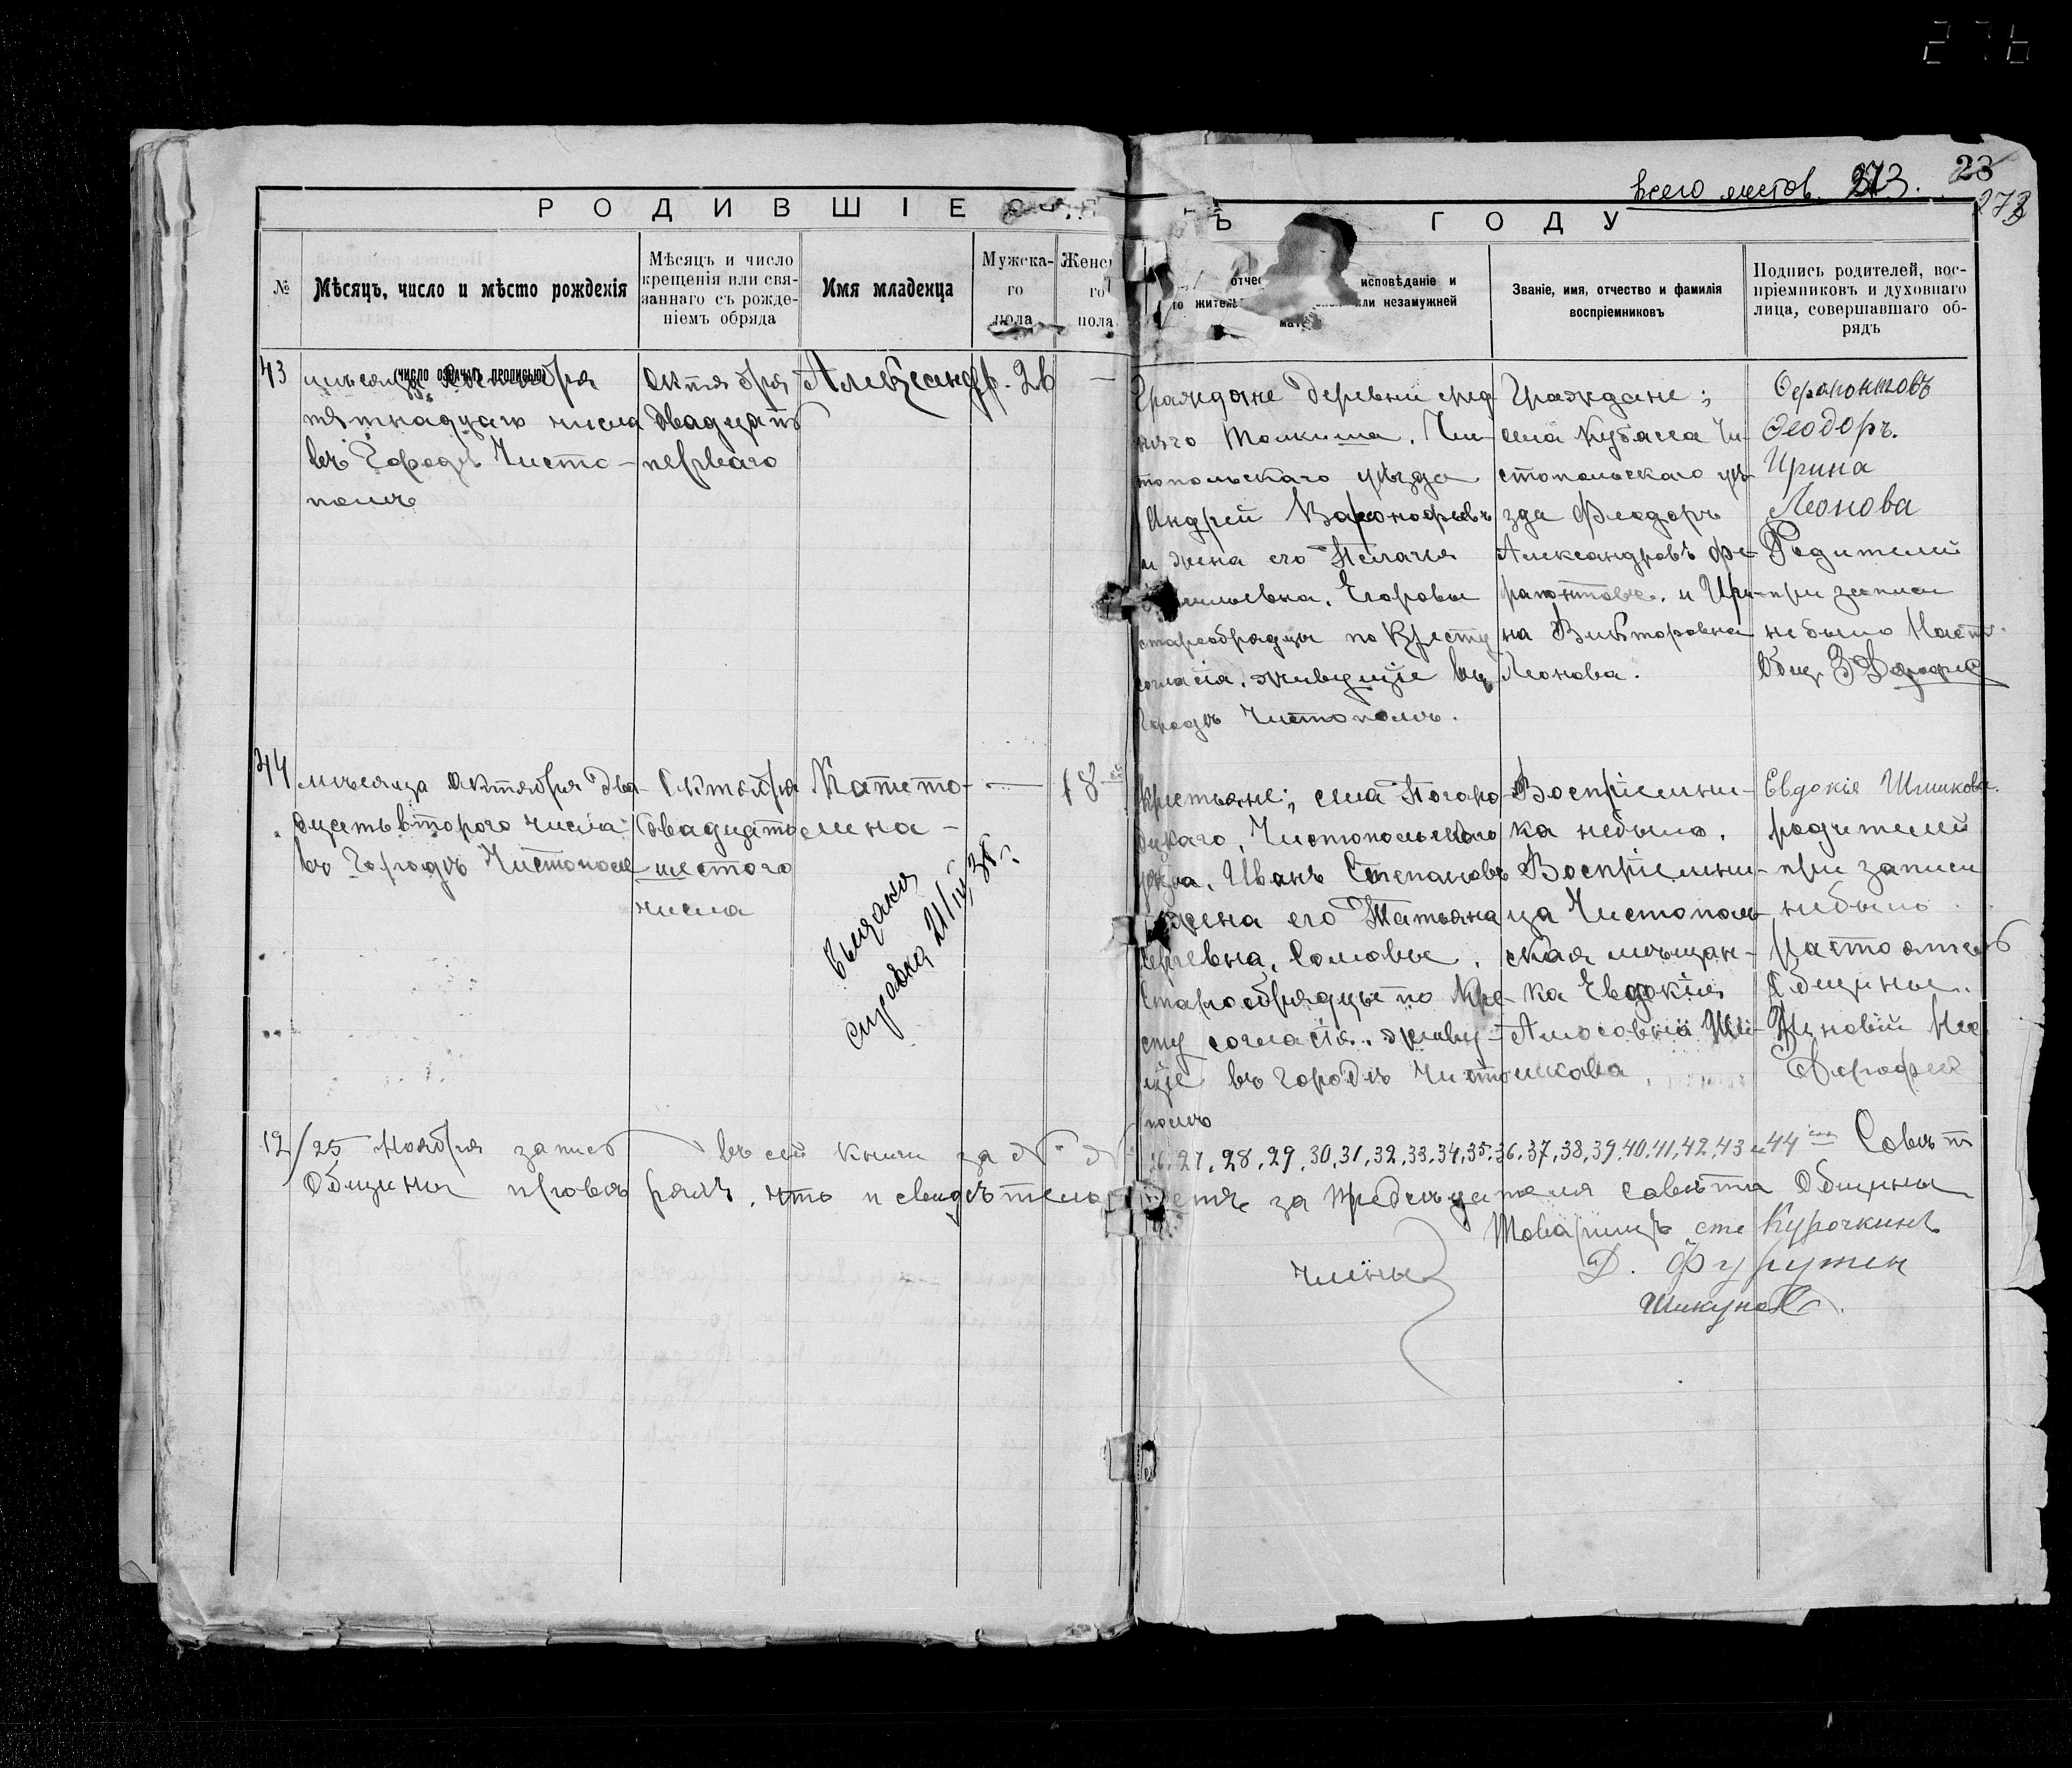 276
всего листов 273.
23
273
РОДИВШІЕС
Ъ ГОДУ
№
Мѣсяцъ, число и мѣсто рожденія
Мѣсяцъ и число
крещенія или свя-
заннаго съ рожде-
ніемъ обряда
Имя младенца
Мужска-
го
пола
Женс
го
пола
отчес исповѣданіе и
го житель или незамужней
мате
Званіе, имя, отчество и фамилія
воспріемниковъ
Подпись родителей, вос-
пріемниковъ и духовнаго
лица, совершавшаго об-
рядъ
(число означать прописью)
43
мѣсяца
пятнадцаго числа
въ Городѣ Чисто-
полѣ
Октября
двадцать
перваго
Александръ
26
—
Граждане деревни сред
няго Толкиша, Чи-
топольскаго уѣзда
Андрей
и жена его Пелагія
Егоровы
старообрядцы по Кресту
согласія, живущіе въ
Городѣ Чистополѣ.
Граждане;
села Кубасса Чи-
стопольскаго уѣ-
зда Феодоръ
Александровъ Фе-
рапонтовъ. и Ири-
на Викторовна
Леонова.
Ферапонтовъ
Феодоръ.
Ирина
Леонова
Родителей
при записи
небыло Наст.
Общ. З
44
мѣсяца Октября два-
дцеть второго числа
въ Городѣ Чистополе
Октября
двадцать
шестого
числа
—
18
выдана
справка 21/III 38 г.
Крестьяне; села
Чистопольскаго
уѣзда, Иванъ Степановъ
жена его Татьяна
Старообрядцы по Кре-
сту согласія. живу-
ще въ городѣ Чисто
полѣ
Воспріемни-
ка небыло.
Воспріемни-
ца Чистополь-
ская мѣщан-
ка Евдокія
Амосовна Ши-
шкова
Евдокія Шишкова.
родителей
при записи
небыло
Настоятель
Общины.
Зиновій
Дорофей
12/25 Ноября запись въ сей книги за №
27, 28, 29, 30, 31, 32, 33, 34, 35, 36, 37, 38, 39, 40, 41, 42, 43 и 44 Совѣт
Общины провѣрялъ, что и свидѣтель за Предсѣдателя совѣта Общины
Товарищъ Курочкинъ
Члены
Д.